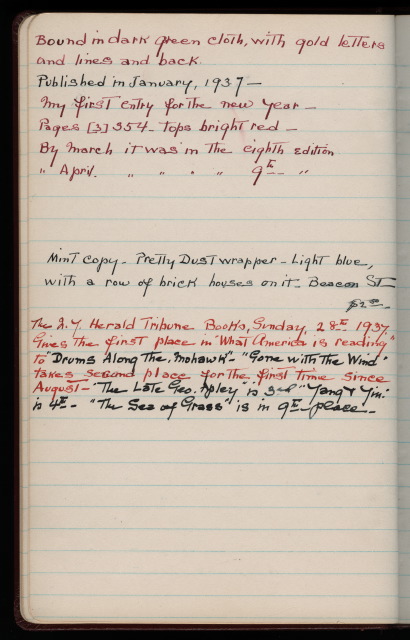 Bound in dark green cloth, with gold letters
and lines and back.
Published in January, 1937 —
My first entry for the new year —
Pages [3] 354 - Tops bright red —
By March it was in the eighth edition
" April. " " " " 9th "
Mint copy - Pretty Dust wrapper - Light blue,
with a row of brick houses on it - Beacon St
$2.50
The N.Y. Herald Tribune Books, Sunday, 28th 1937.
Gives the first place in "What America is reading"
to "Drums Along The Mohawk" - "Gone with the Wind"
takes second place for the first time since
August - "The Late Geo. Apley" is 3rd "Yang & Yin"
is 4th - "The Sea of Grass" is in 9th place -